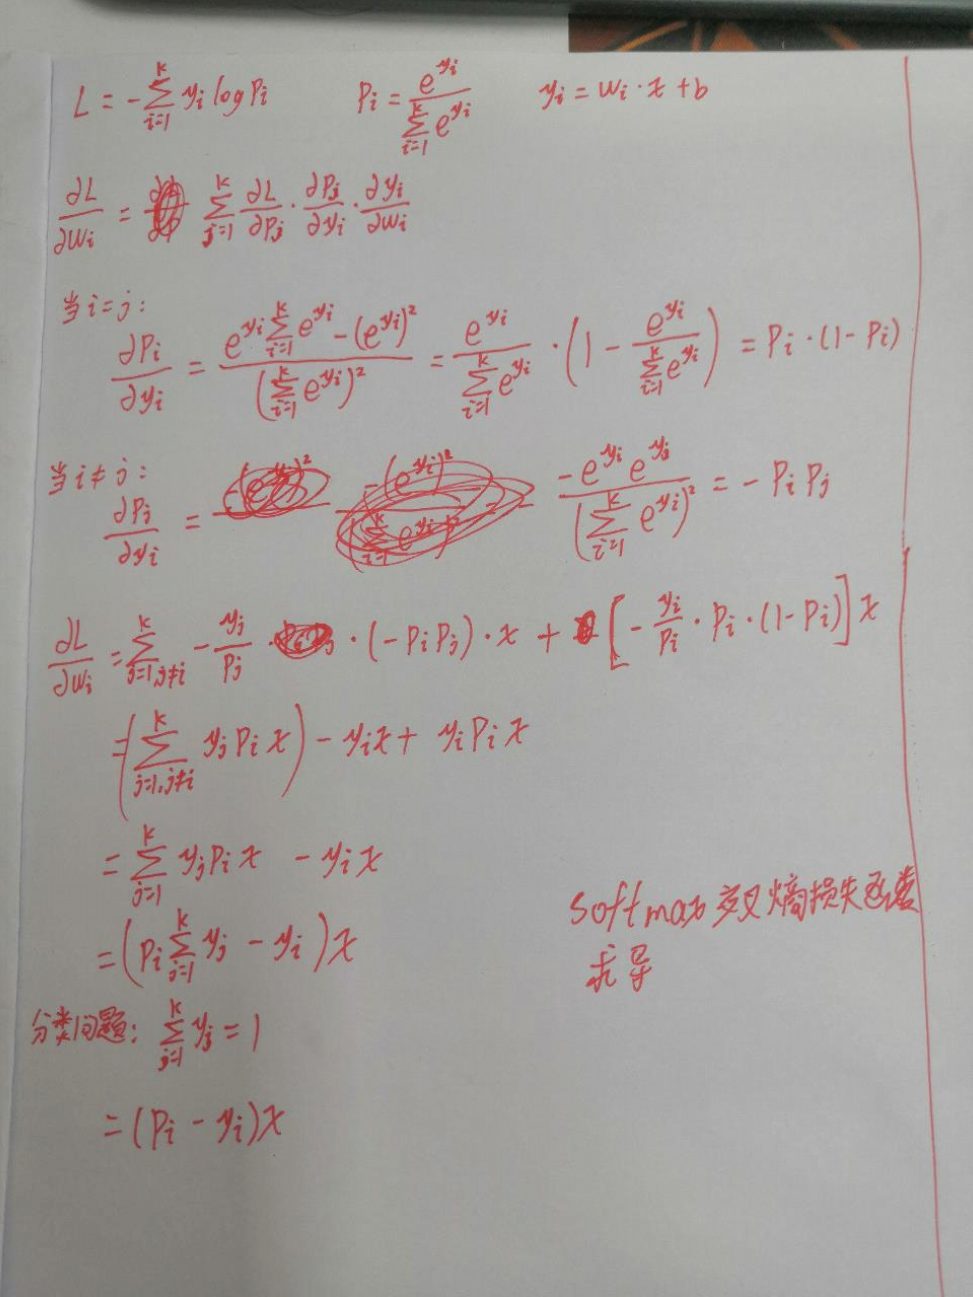 L = -∑_{i=1}^{k} y_i log P_i    P_i = e^{y_i} / ∑_{i=1}^{k} e^{y_i}    y_i = w_i · x + b
∂L/∂w_i = ∑_{j=1}^{k} ∂L/∂P_j · ∂P_j/∂y_i · ∂y_i/∂w_i
当 i = j :
∂P_i/∂y_i = (e^{y_i} ∑_{i=1}^{k} e^{y_i} - (e^{y_i})²) / (∑_{i=1}^{k} e^{y_i})² = e^{y_i} / ∑_{i=1}^{k} e^{y_i} · (1 - e^{y_i} / ∑_{i=1}^{k} e^{y_i}) = P_i · (1 - P_i)
当 i ≠ j :
∂P_j/∂y_i = -e^{y_i} e^{y_j} / (∑_{i=1}^{k} e^{y_i})² = - P_i P_j
∂L/∂w_i = ∑_{j=1,j≠i}^{k} - y_j/P_j · (-P_i P_j) · x + [- y_i/P_i · P_i · (1 - P_i)] x
= (∑_{j=1,j≠i}^{k} y_j P_i x) - y_i x + y_i P_i x
= ∑_{j=1}^{k} y_j P_i x - y_i x
= (P_i ∑_{j=1}^{k} y_j - y_i) x
softmax 交叉熵损失函数
求导
分类问题: ∑_{j=1}^{k} y_j = 1
= (P_i - y_i) x